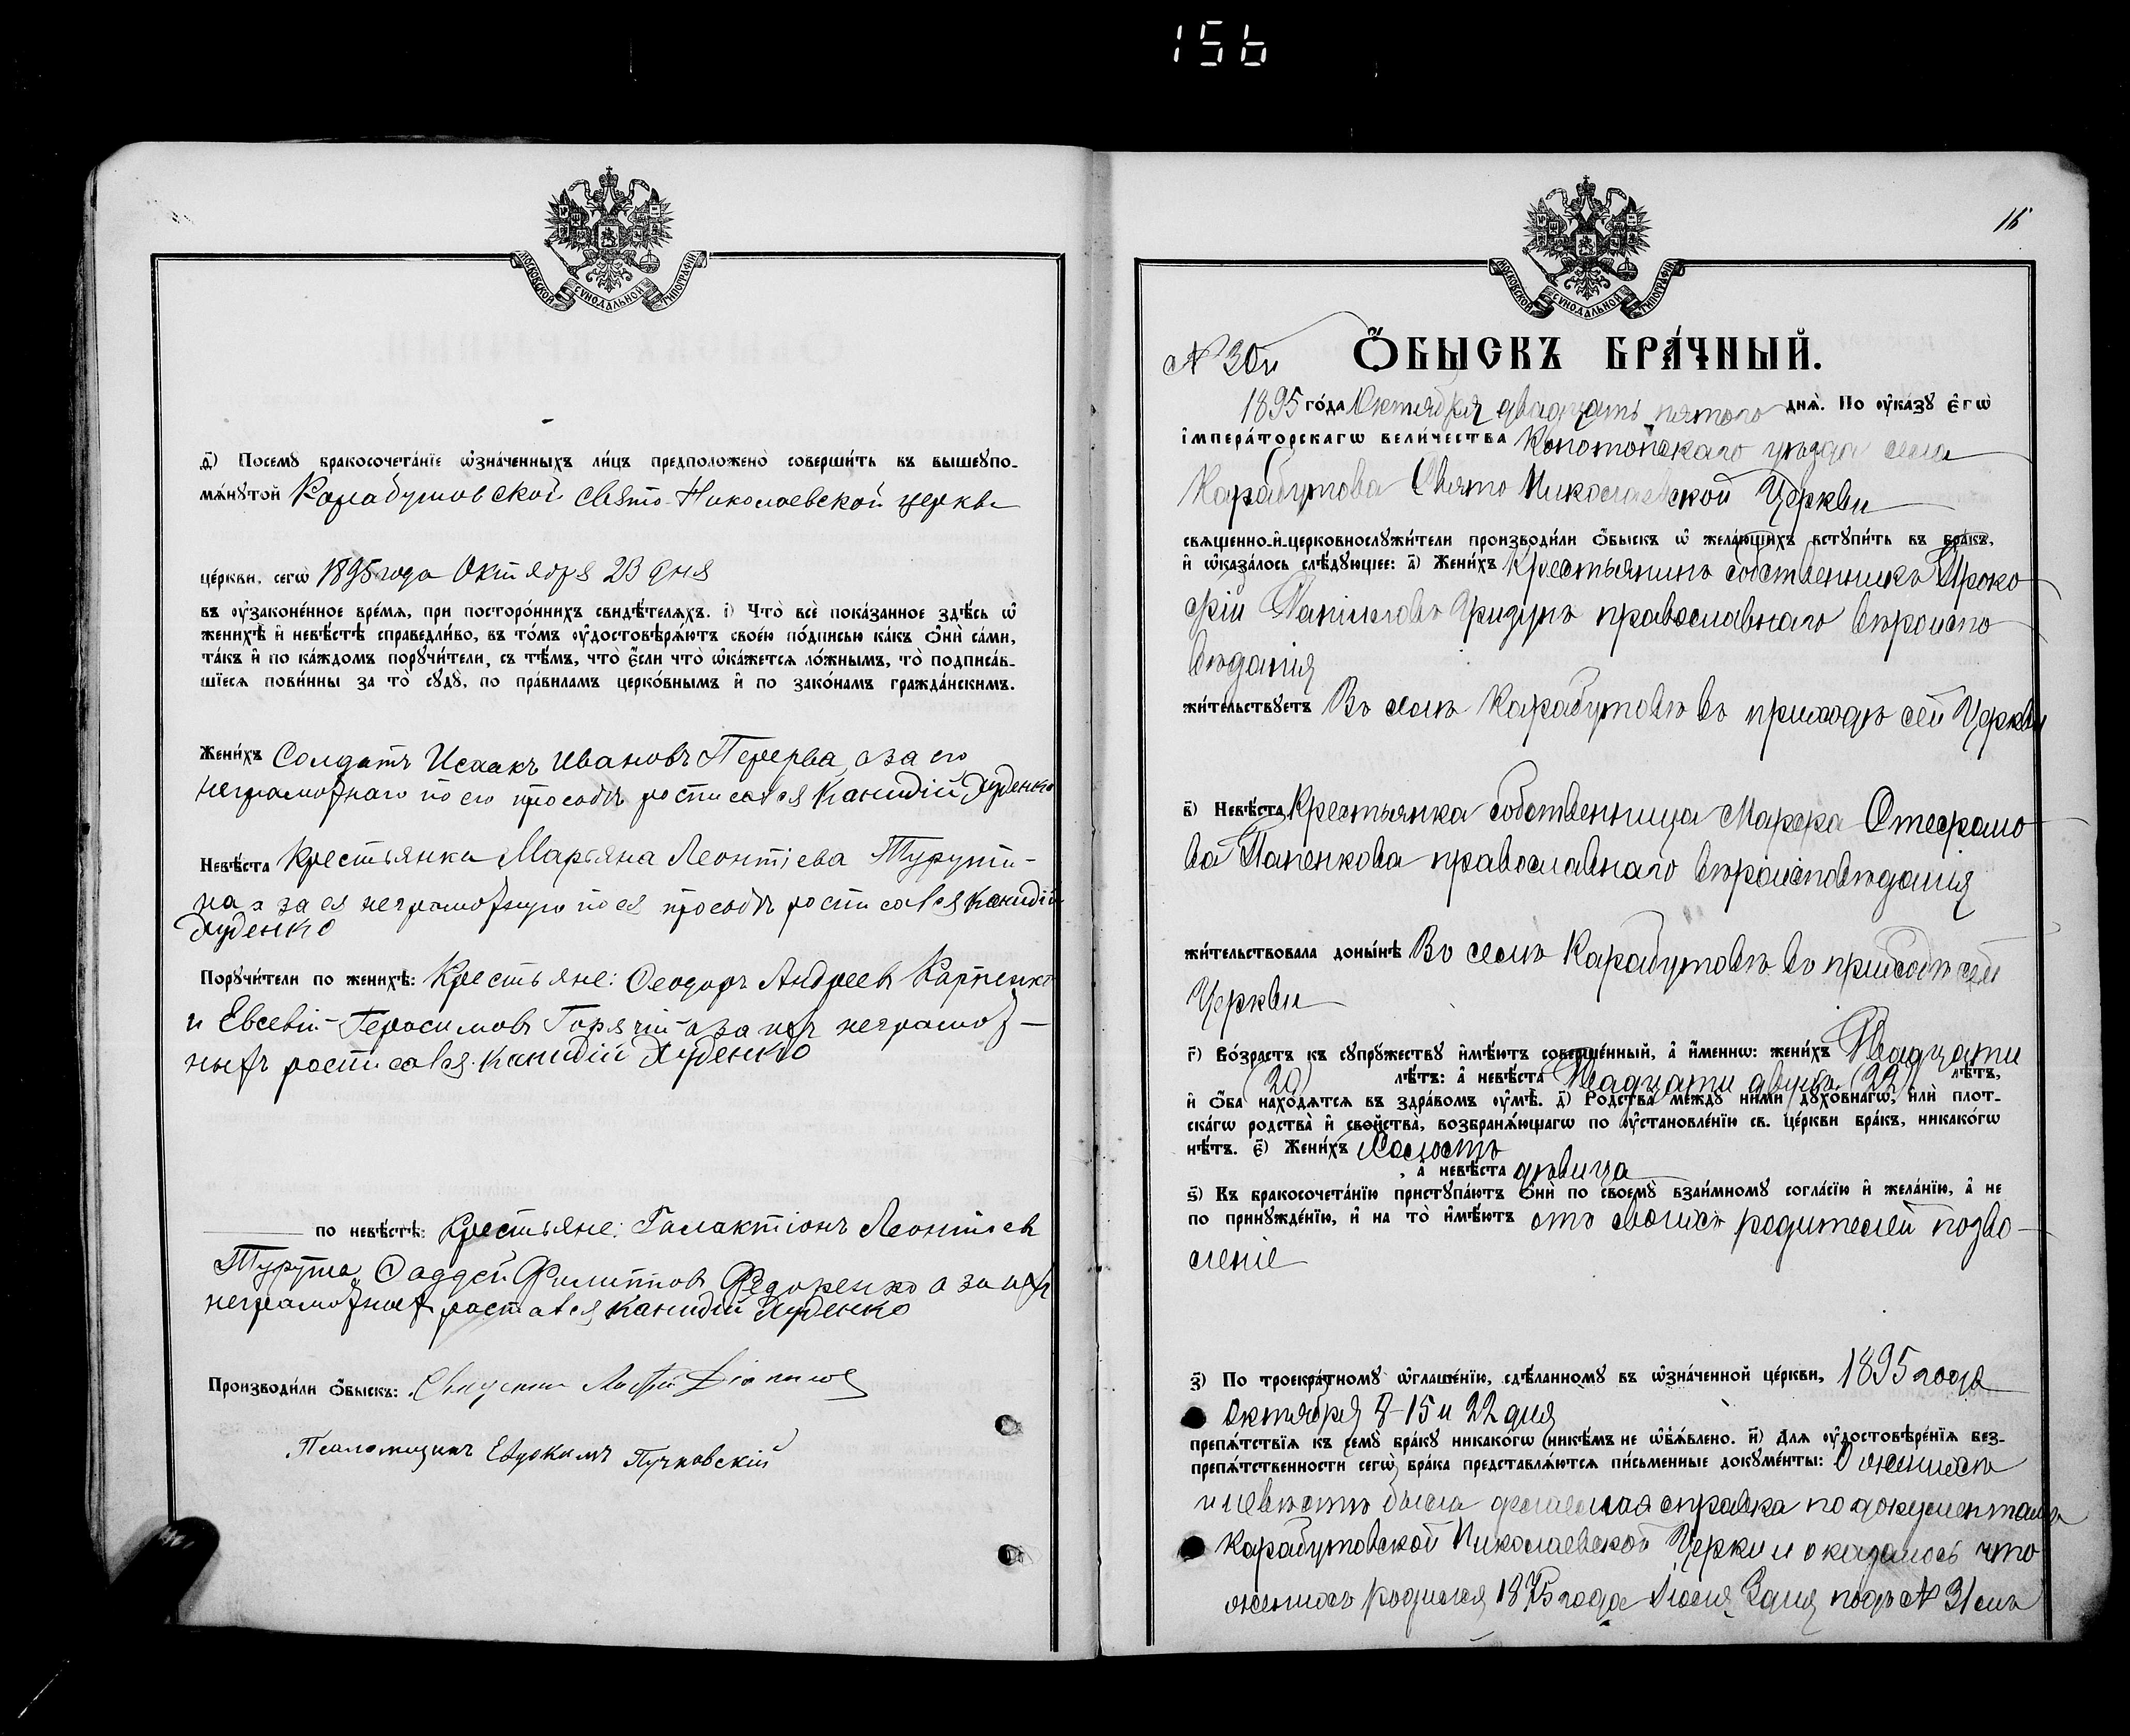 156
МОСКОВСКОЙ СУНОДАЛЬНОЙ ТИПОГРАФІИ
д҃) Посему бракосочетаніе ѡзначенныхъ лицъ предположено совершить въ вышеупо-
мянутой Карабутовской свято-Николаевской церкви
церкви, сегѡ 1895 года Октября 23 дня
въ оузаконенное время, при постороннихъ свидѣтеляхъ. і) Что все показанное здѣсь ѡ
женихѣ и невѣстѣ справедливо, въ томъ оудостовѣряютъ своею подписью какъ ѻни сами,
такъ и по каждомъ поручители, съ тѣмъ, что если что ѡкажется ложнымъ, то подписав-
шїеся повинны за то суду, по правиламъ церковнымъ и по законамъ гражданскимъ.
Женихъ Солдатъ Исаакъ Ивановъ Перерва, а за его
неграмотнаго по его прозьбѣ росписался Канидій Руденко
Невѣста Крестьянка Марьяна Леонтіева Турути-
на а за ея неграмотную по ея прозьбѣ росписался Канидій
Руденко
Поручители по женихѣ: Крестьяне: Ѳеодоръ Андреевъ Карпенко
и Евсевій Герасимовъ Горячій а за ихъ неграмот-
ныхъ росписался Канидій Руденко
по невѣстѣ: Крестьяне: Галактіонъ Леонтіевъ
Турута, Ѳаддей Филиповъ Федоренко а за ихъ
неграмотныхъ Канидій Руденко
Производили ѻбыскъ: Священникъ
Псаломщикъ Евдокимъ Пучковскій
16
МОСКОВСКОЙ СУНОДАЛЬНОЙ ТИПОГРАФІИ
№ 30й ѺБЫСКЪ БРАЧНЫЙ.
1895 года Октября двадцать пятого дня. По оуказу егѡ
императорскагѡ величества Конотопскаго уѣзда села
Карабутова Свято Николаевской Церкви
священно-и-церковнослужители производили ѻбыскъ ѡ желающихъ вступить въ бракъ,
и ѡказалось слѣдующее: а҃) Женихъ Крестьянинъ собственникъ Проко
фій Даніиловъ Гризунъ православнаго вѣроиспо
вѣданія
жительствуетъ Въ селѣ Карабутовѣ въ приходѣ сей Церкви
в҃) Невѣста Крестьянка собственница Марфа Стефано
ва Папенкова православнаго вѣроисповѣданія
жительствовала донынѣ Въ селѣ Карабутовѣ въ приходѣ сей
Церкви
г҃) Возрастъ къ супружеству имѣютъ совершенный, а именнѡ: женихъ Двадцати
(20) лѣтъ: а невѣста Двадцати двухъ (22) лѣтъ,
и ѻба находятся въ здравомъ оумѣ. д҃) Родства между ними духовнагѡ, или плот-
скагѡ родства и свойства, возбраняющагѡ по оустановленїю св. церкви бракъ, никакогѡ
нѣтъ. е҃) Женихъ Холостъ
, а невѣста дѣвица
ѕ҃) Къ бракосочетанїю приступаютъ ѻни по своему взаимному согласїю и желанїю, а не
по принужденїю, и на то имѣютъ отъ своихъ родителей позво-
леніе
з҃) По троекратному ѡглашенїю, сдѣланному въ ѡзначенной церкви, 1895 года
Октября 8-15 и 22 дня
препятствїя къ сему браку никакогѡ никѣмъ не ѡбъявлено. и҃) Для оудостовѣренїя без-
препятственности сегѡ брака представляются письменные документы: О женихѣ
и невѣстѣ была дѣлаемая справка по документамъ
Карабутовской Николаевской Церкви и оказалось что
женихъ родился 1875 года Іюля 3 дня подъ № 31 емъ